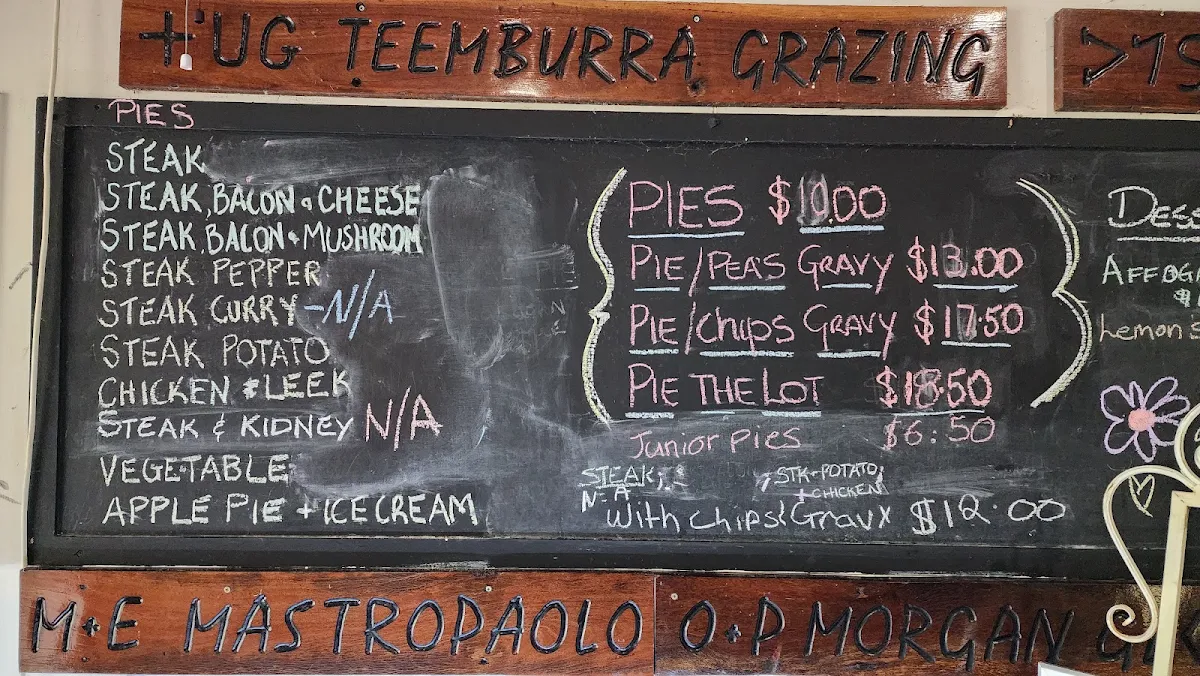 + UG TEEMBURRA GRAZING
PIES
STEAK
STEAK, BACON & CHEESE
STEAK, BACON & MUSHROOM
STEAK PEPPER
STEAK CURRY - N/A
STEAK POTATO
CHICKEN & LEEK
STEAK & KIDNEY N/A
VEGETABLE
APPLE PIE + ICE CREAM
PIES $10.00
PIE/PEAS GRAVY $13.00
PIE/CHIPS GRAVY $17.50
PIE THE LOT $18.50
JUNIOR PIES $6.50
STEAK, STK+POTATO,
N-A + CHICKEN
With chips & Gravy $12.00
AFFOG
$
Lemon
M+E MASTROPAOLO
O+P MORGAN